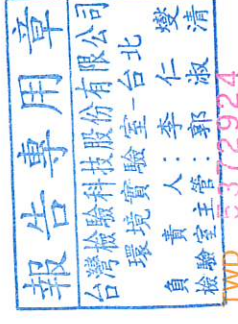 報告專用章
台灣檢驗科技股份有限公司
環境實驗室-台北
負責人：李仁燮
檢驗室主管：郭淑清
TWD 5372924